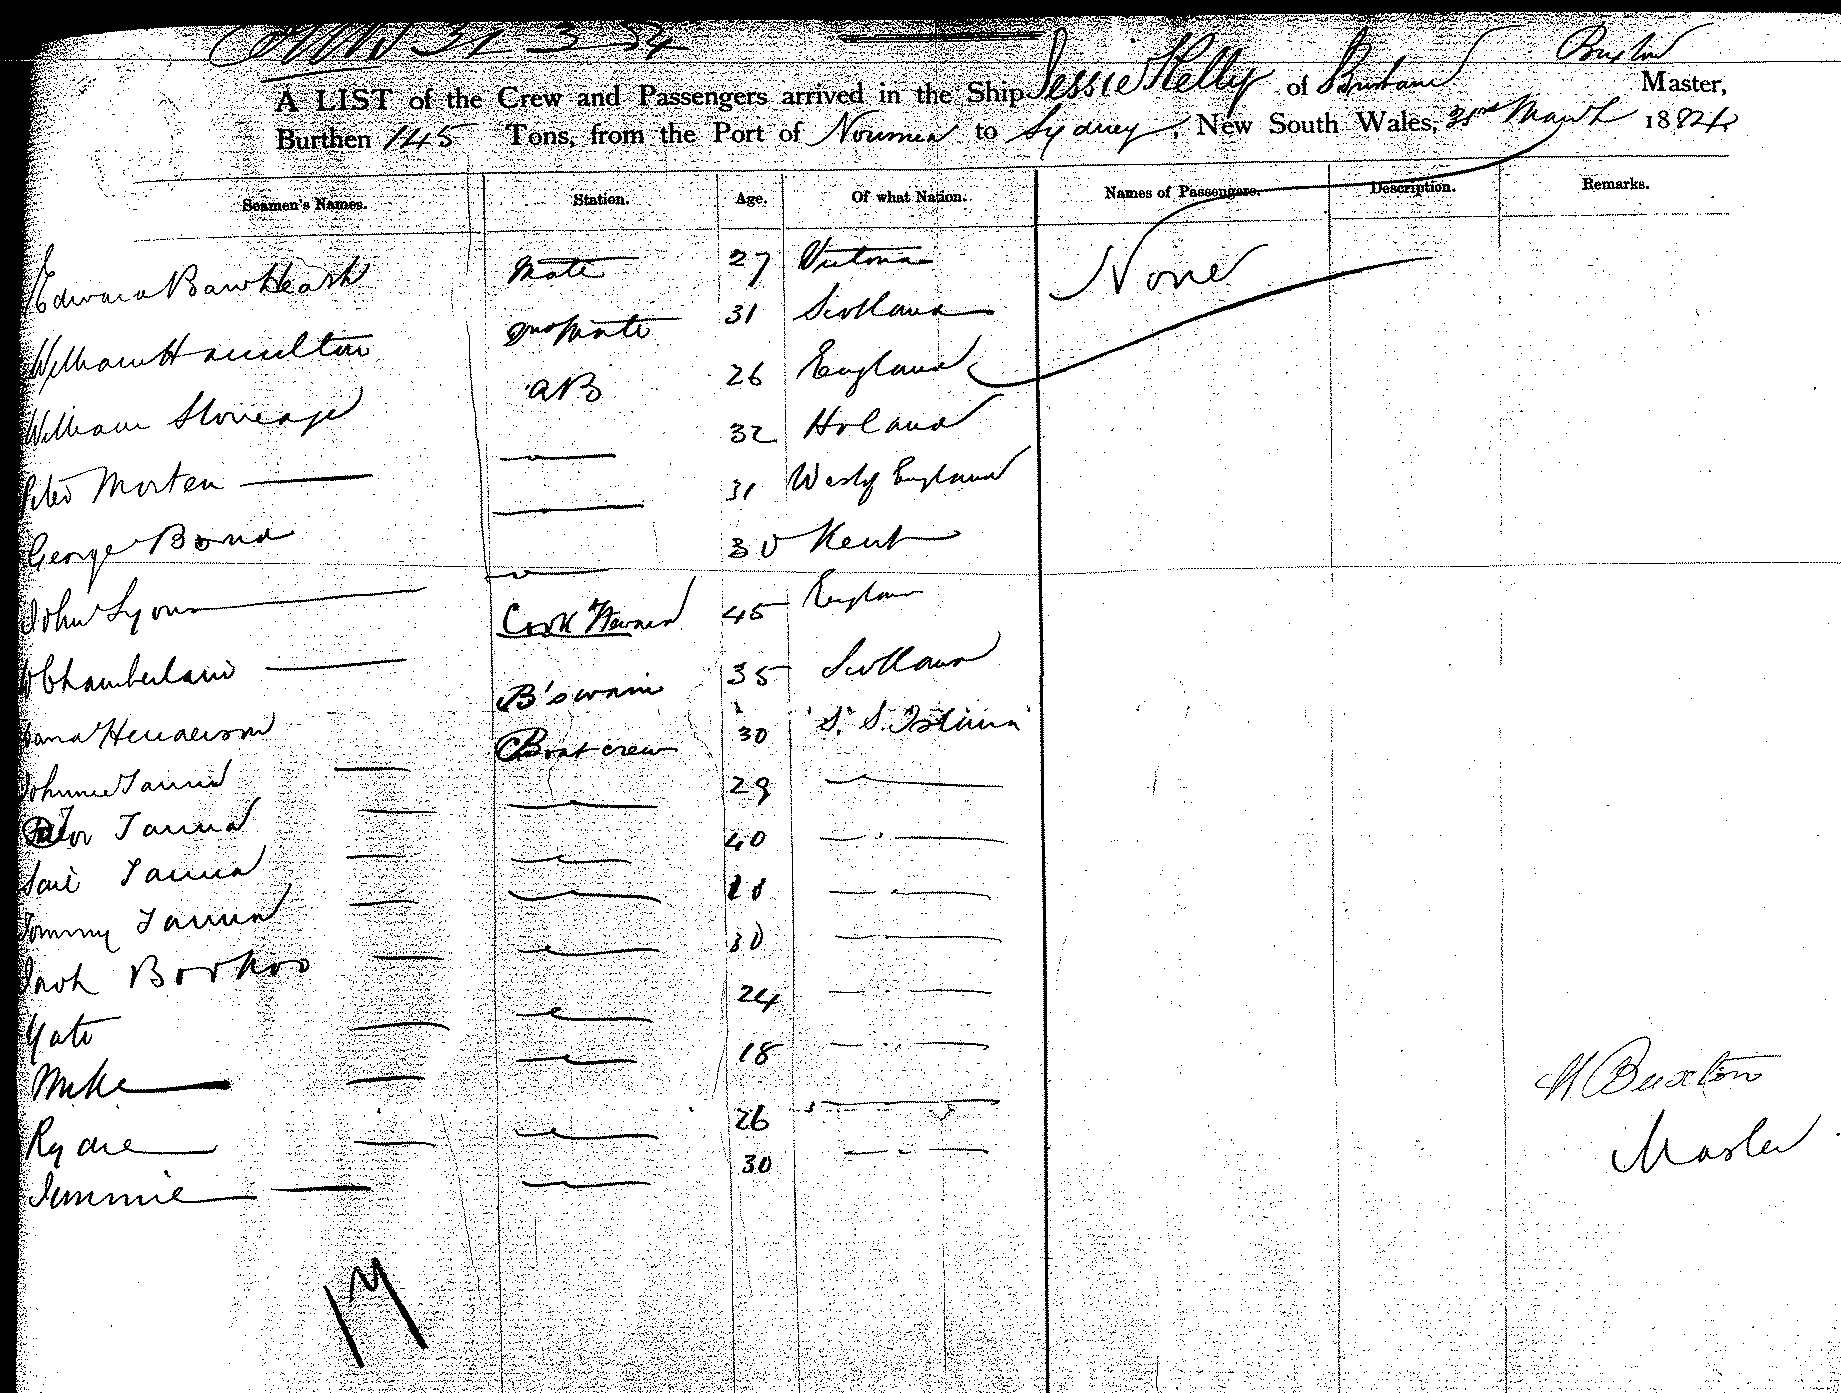 31 3 84
Buxton
A LIST of the Crew and Passengers arrived in the Ship Jessie Kelly of Brisbane Master,
Burthen 145 Tons, from the Port of Noumea to Sydney, New South Wales, 31st March 1884
Seamen's Names. Station. Age. Of what Nation. Names of Passengers. Description. Remarks.
Edward Mate 27 Victoria None
William Hamilton 2nd Mate 31 Scotland
William Stoneage AB 26 England
Peter Morten — " 32 Holand
George Bond " 31 West of England
John Lyons " 30 Kent
Chamberlain — Cook Steward 45 England
Henderson B'swain 35 Scotland
Johnnie Tanna — Boat crew 30 S. S. Island
Tanna — " 29 "
Tanna — " 40 "
Tommy Tanna — " "
Jack Borkoo — " 30 "
Yato — " 24 "
Mike — " 18 "
Rydie — " 26 "
Jimmie — " 30 "
H Buxton
Master
17